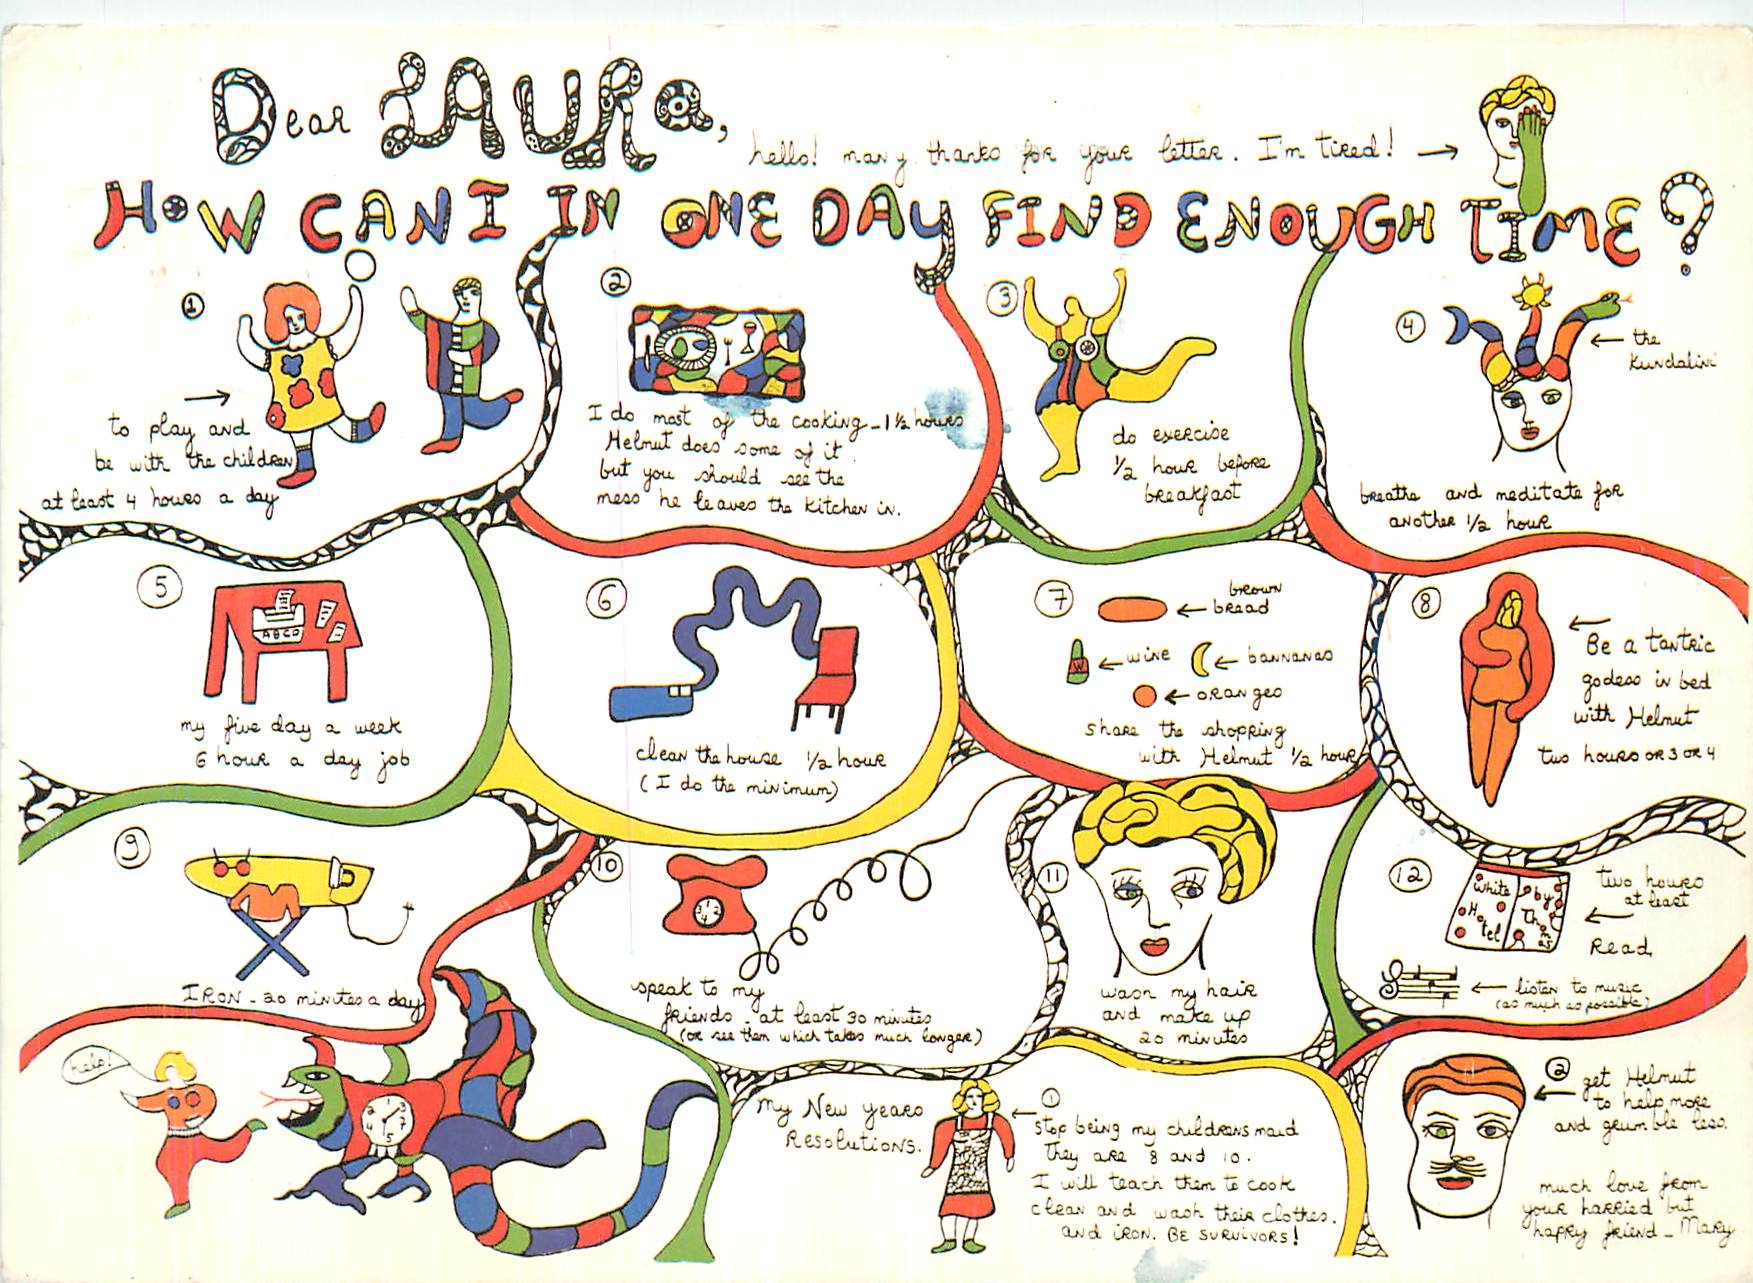 Dear LAURA,
hello! many thanks for your letter. I'm tired! →
HOW CAN I IN ONE DAY FIND ENOUGH TIME?
1
to play and
be with the children
at least 4 hours a day
2
I do most of the cooking - 1½ hours
Helmut does some of it
but you should see the
mess he leaves the kitchen in.
3
do exercise
1/2 hour before
breakfast
4
← the
Kundalini
breathe and meditate for
another 1/2 hour
5
ABCD
my five day a week
6 hour a day job
6
clean the house 1/2 hour
(I do the minimum)
7
← brown
bread
W ← wine
← bannanas
← oranges
share the shopping
with Helmut 1/2 hour
8
← Be a tantric
godess in bed
with Helmut
two hours OR 3 OR 4
9
IRON - 20 minutes a day
10
speak to my
friends - at least 30 minutes
(or see them which takes much longer)
11
wash my hair
and make up
20 minutes
12
White Hotel
by Thomas
two hours
at least
←
Read.
← listen to music
(as much as possible)
help!
My New Years
Resolutions.
← 1
stop being my childrens maid
They are 8 and 10.
I will teach them to cook
clean and wash their clothes.
and iron. BE SURVIVORS!
← 2 get Helmut
to help more
and grumble less.
much love from
your harried but
happy friend - Mary